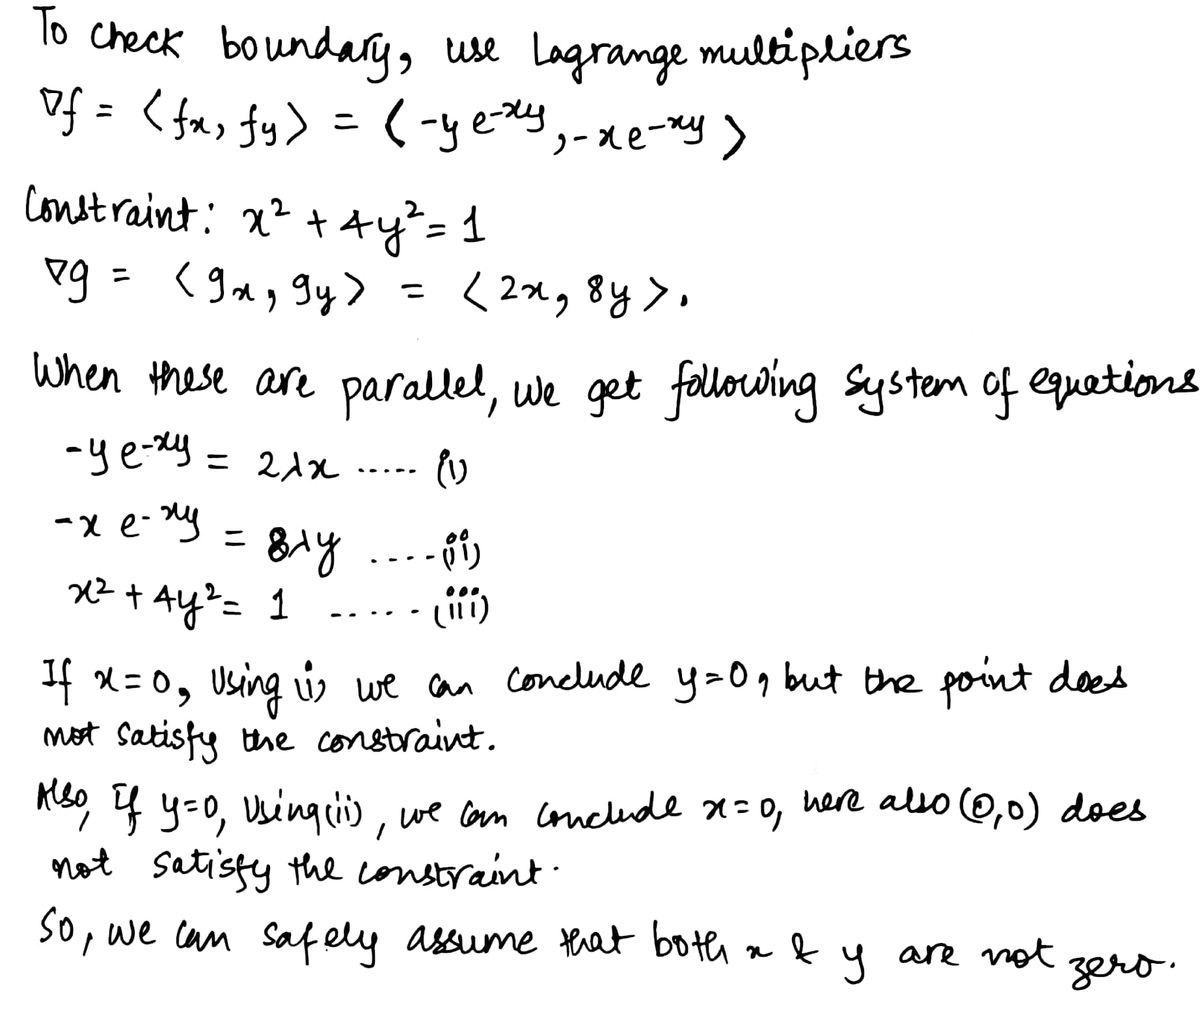 To check boundary, use Lagrange multipliers
∇f = ⟨fx, fy⟩ = ⟨-y e^{-xy}, -x e^{-xy}⟩
Constraint: x² + 4y² = 1
∇g = ⟨gx, gy⟩ = ⟨2x, 8y⟩.
When these are parallel, we get following system of equations
-y e^{-xy} = 2λx ..... (i)
-x e^{-xy} = 8λy ....(ii)
x² + 4y² = 1 ..... (iii)
If x=0, Using (i) we can conclude y=0, but the point does
not satisfy the constraint.
Also, If y=0, Using (ii), we can conclude x=0, here also (0,0) does
not satisfy the constraint.
So, we can safely assume that both x & y are not zero.